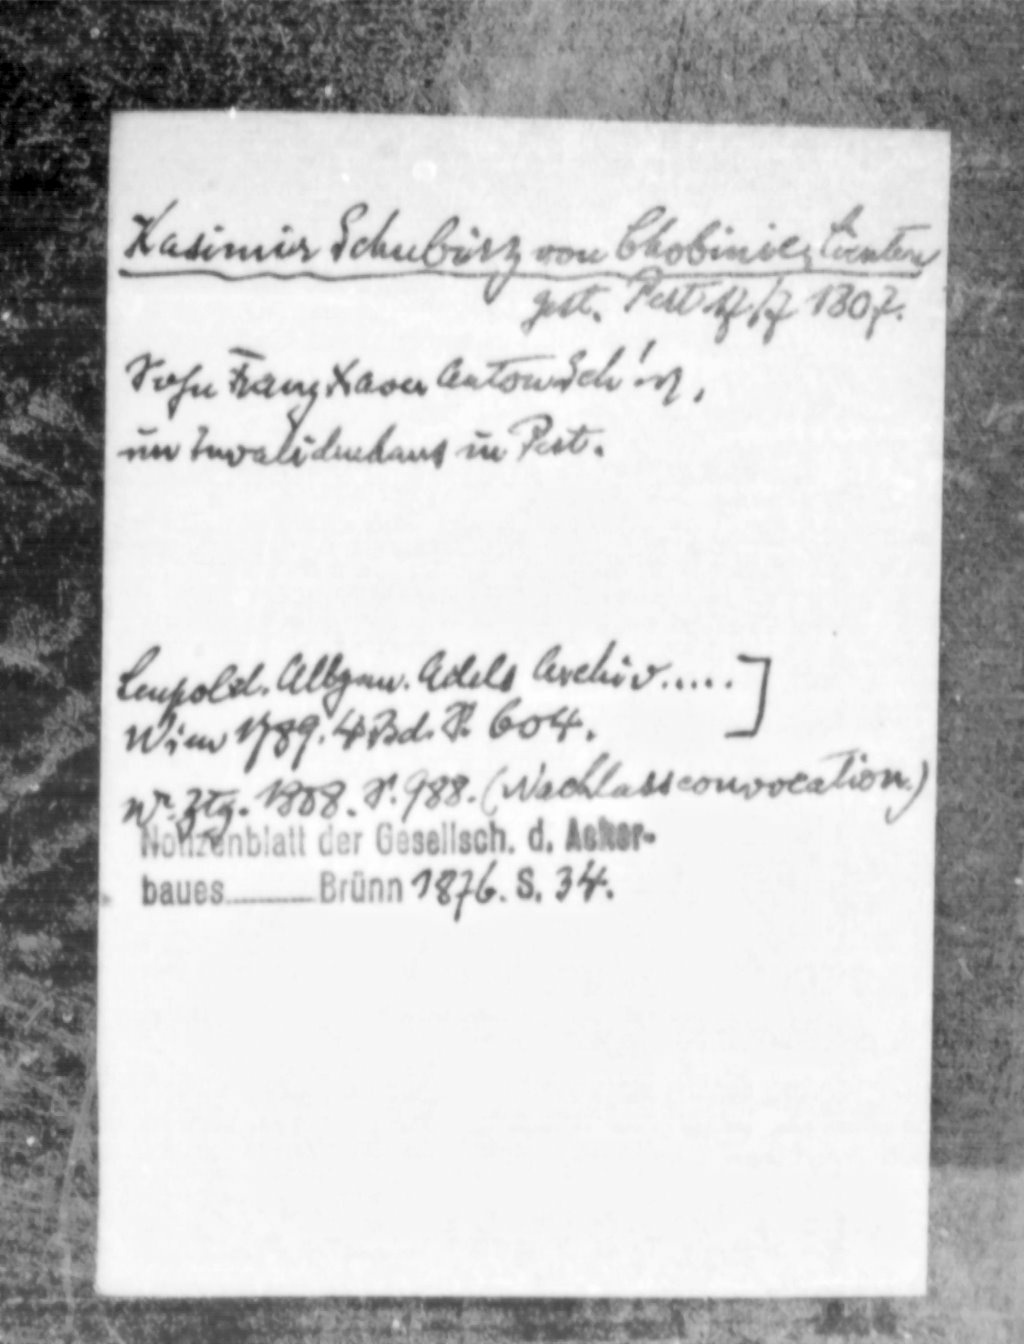 Kasimir Schubirz von Chobinie, Lieuten
gest. Pest 17/7 1807.
Sohn Franz Xaver Anton Sch's,
im Invalidenhaus in Pest.
Leupold. Allgem. Adels Archiv.....]
Wien 1789. 4 Bd. S. 604.
Wr. Ztg. 1808. S. 988. (Nachlassconvocation.)
Notizenblatt der Gesellsch. d. Acker-
baues ........ Brünn 1876. S. 34.